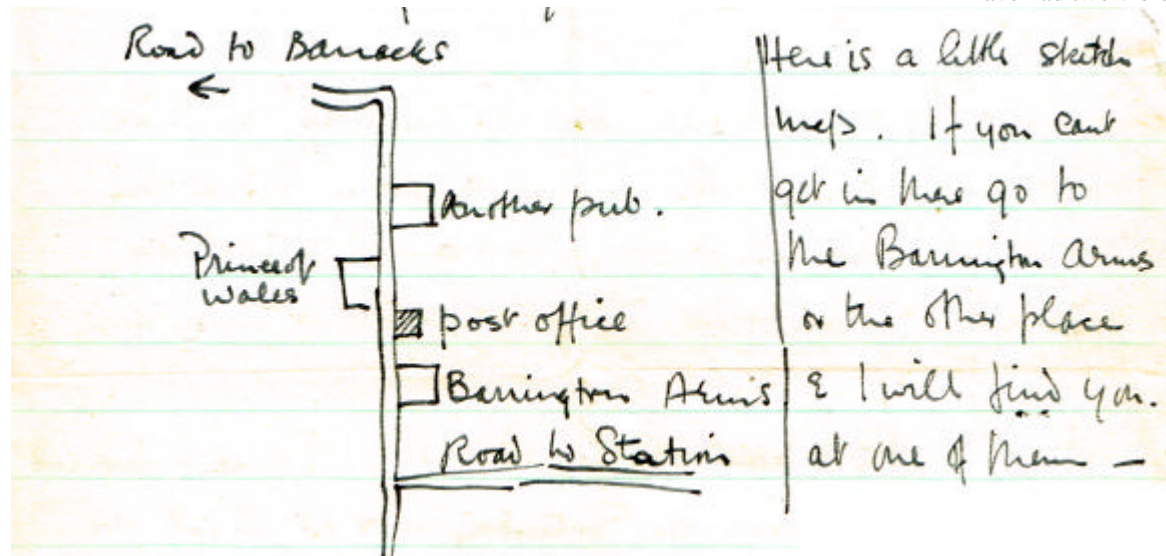 Road to Barracks
Another pub.
Prince of
Wales
post office
Barrington Arms
Road to Station
Here is a little sketch
map. If you cant
get in there go to
the Barrington Arms
or the other place
& I will find you.
at one of them —